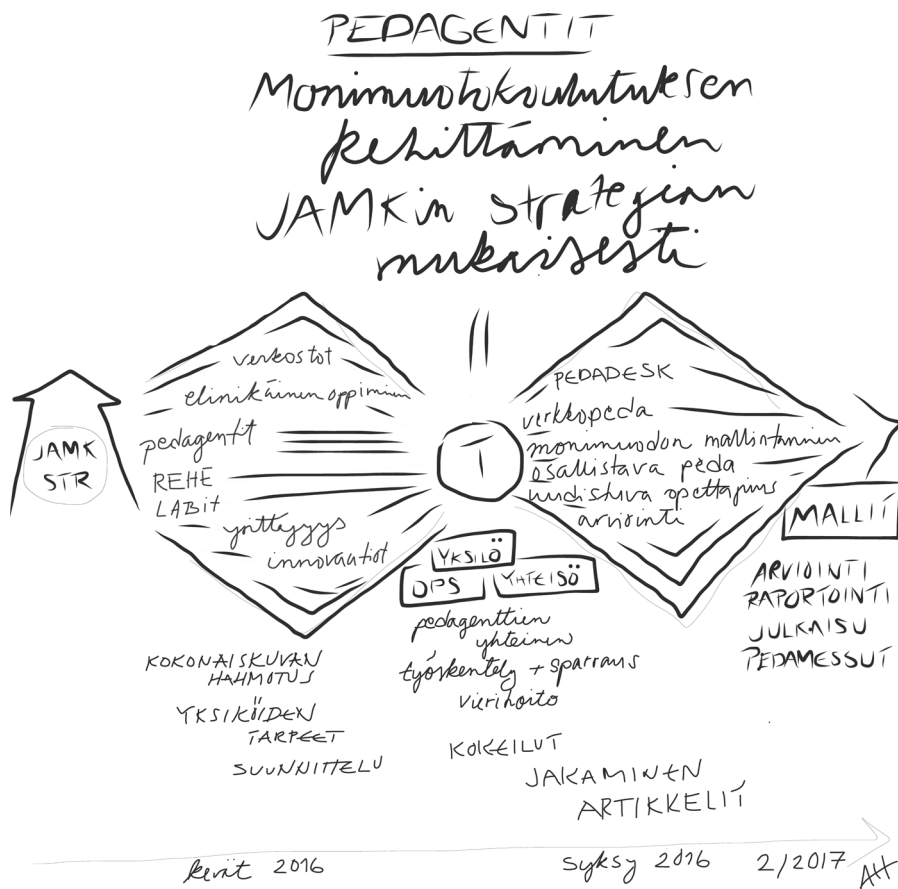 PEDAGENTIT
Monimuotokoulutuksen
kehittäminen
JAMKin strategian
mukaisesti
JAMK
STR
verkostot
elinikäinen oppiminen
pedagentit
REHE
LABit
yrittäjyys
innovaatiot
1
PEDADESK
verkkopeda
monimuodon mallintaminen
osallistava peda
uudistuva opettajuus
arviointi
MALLIT
ARVIOINTI
RAPORTOINTI
JULKAISU
PEDAMESSUT
YKSILÖ
OPS YHTEISÖ
pedagenttien
yhteinen
työskentely + sparraus
vierihoito
KOKONAISKUVAN
HAHMOTUS
YKSIKÖIDEN
TARPEET
SUUNNITTELU
KOKEILUT
JAKAMINEN
ARTIKKELIT
kevät 2016
syksy 2016
2/2017
AH